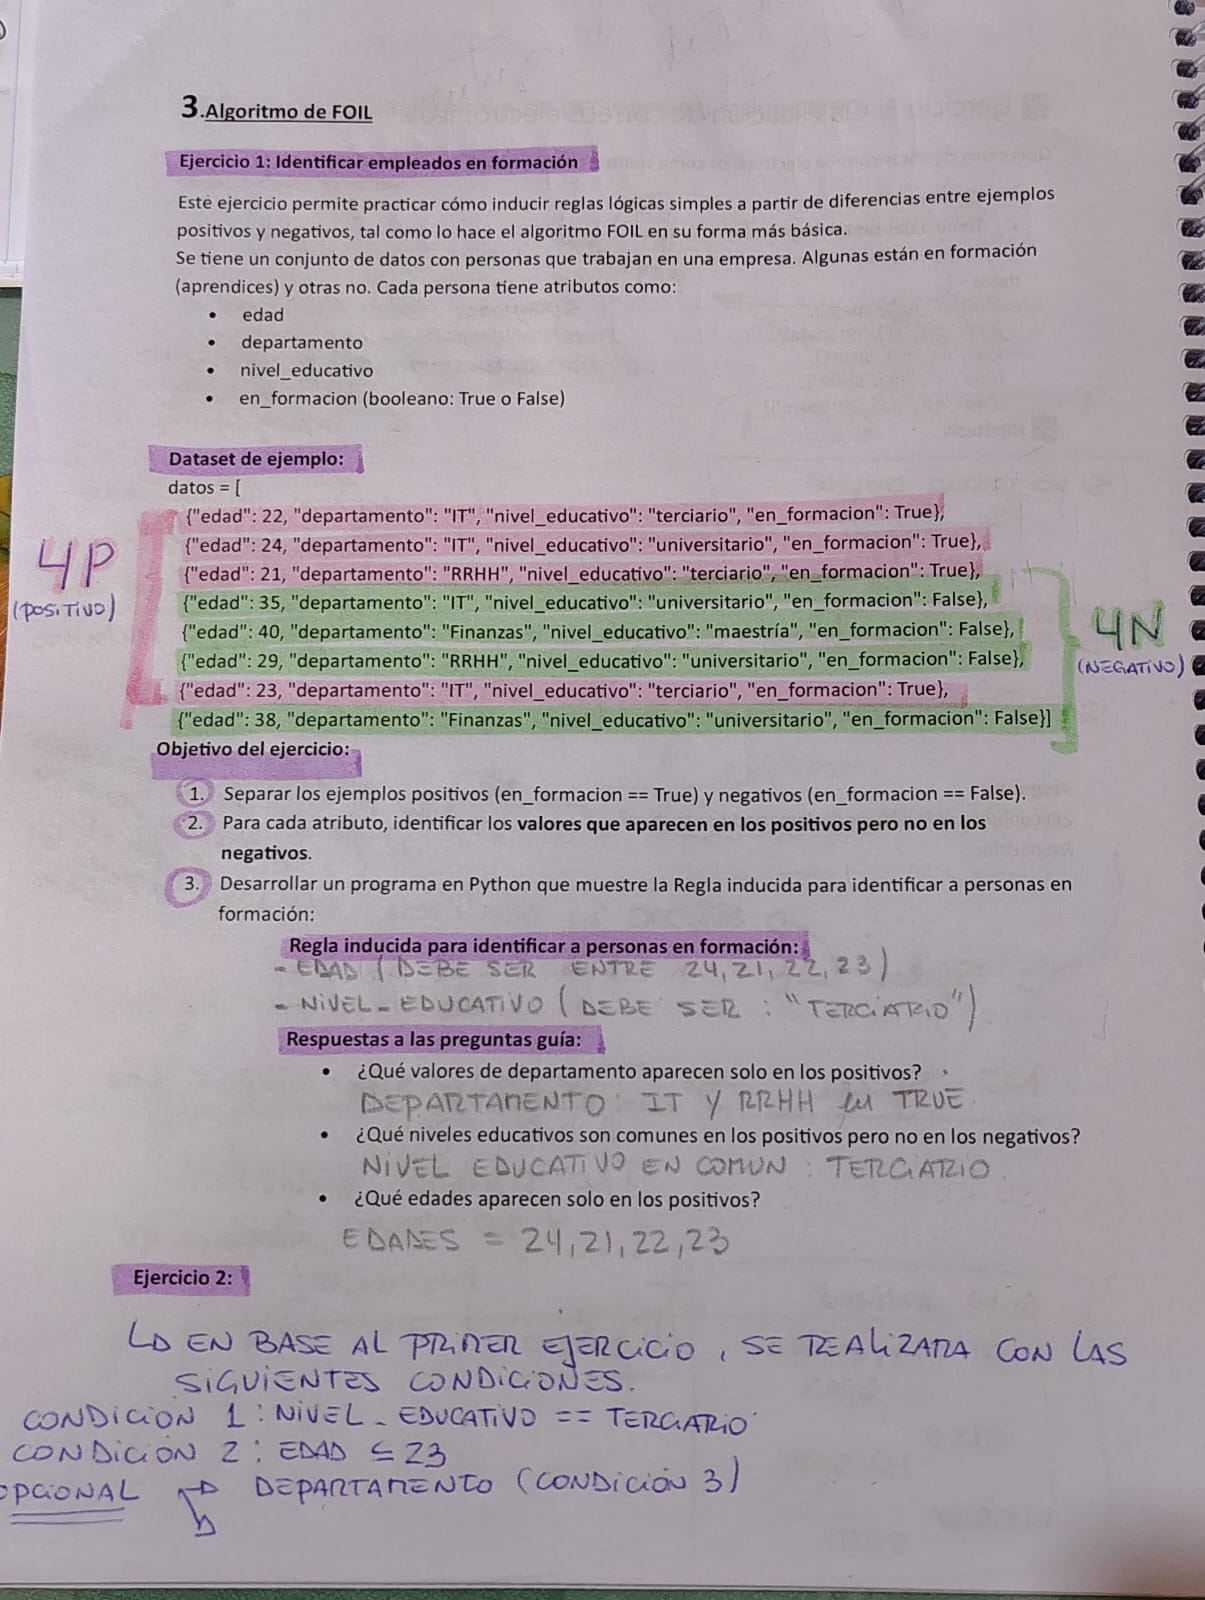 3.Algoritmo de FOIL
Ejercicio 1: Identificar empleados en formación
Este ejercicio permite practicar cómo inducir reglas lógicas simples a partir de diferencias entre ejemplos
positivos y negativos, tal como lo hace el algoritmo FOIL en su forma más básica.
Se tiene un conjunto de datos con personas que trabajan en una empresa. Algunas están en formación
(aprendices) y otras no. Cada persona tiene atributos como:
• edad
• departamento
• nivel_educativo
• en_formacion (booleano: True o False)
Dataset de ejemplo:
datos = [
{"edad": 22, "departamento": "IT", "nivel_educativo": "terciario", "en_formacion": True},
{"edad": 24, "departamento": "IT", "nivel_educativo": "universitario", "en_formacion": True},
{"edad": 21, "departamento": "RRHH", "nivel_educativo": "terciario", "en_formacion": True},
{"edad": 35, "departamento": "IT", "nivel_educativo": "universitario", "en_formacion": False},
{"edad": 40, "departamento": "Finanzas", "nivel_educativo": "maestría", "en_formacion": False},
{"edad": 29, "departamento": "RRHH", "nivel_educativo": "universitario", "en_formacion": False},
{"edad": 23, "departamento": "IT", "nivel_educativo": "terciario", "en_formacion": True},
{"edad": 38, "departamento": "Finanzas", "nivel_educativo": "universitario", "en_formacion": False}]
4P
(POSITIVO)
4N
(NEGATIVO)
Objetivo del ejercicio:
1. Separar los ejemplos positivos (en_formacion == True) y negativos (en_formacion == False).
2. Para cada atributo, identificar los valores que aparecen en los positivos pero no en los
negativos.
3. Desarrollar un programa en Python que muestre la Regla inducida para identificar a personas en
formación:
Regla inducida para identificar a personas en formación:
- EDAD (DEBE SER ENTRE 24, 21, 22, 23)
- NIVEL-EDUCATIVO (DEBE SER : "TERCIARIO")
Respuestas a las preguntas guía:
• ¿Qué valores de departamento aparecen solo en los positivos?
DEPARTAMENTO: IT Y RRHH en TRUE.
• ¿Qué niveles educativos son comunes en los positivos pero no en los negativos?
NIVEL EDUCATIVO EN COMUN : TERCIARIO.
• ¿Qué edades aparecen solo en los positivos?
EDADES = 24, 21, 22, 23
Ejercicio 2:
EN BASE AL PRIMER EJERCICIO, SE REALIZARA CON LAS
SIGUIENTES CONDICIONES.
CONDICION 1 : NIVEL_EDUCATIVO == TERCIARIO
CONDICION 2 : EDAD ≤ 23
OPCIONAL DEPARTAMENTO (CONDICIÓN 3)